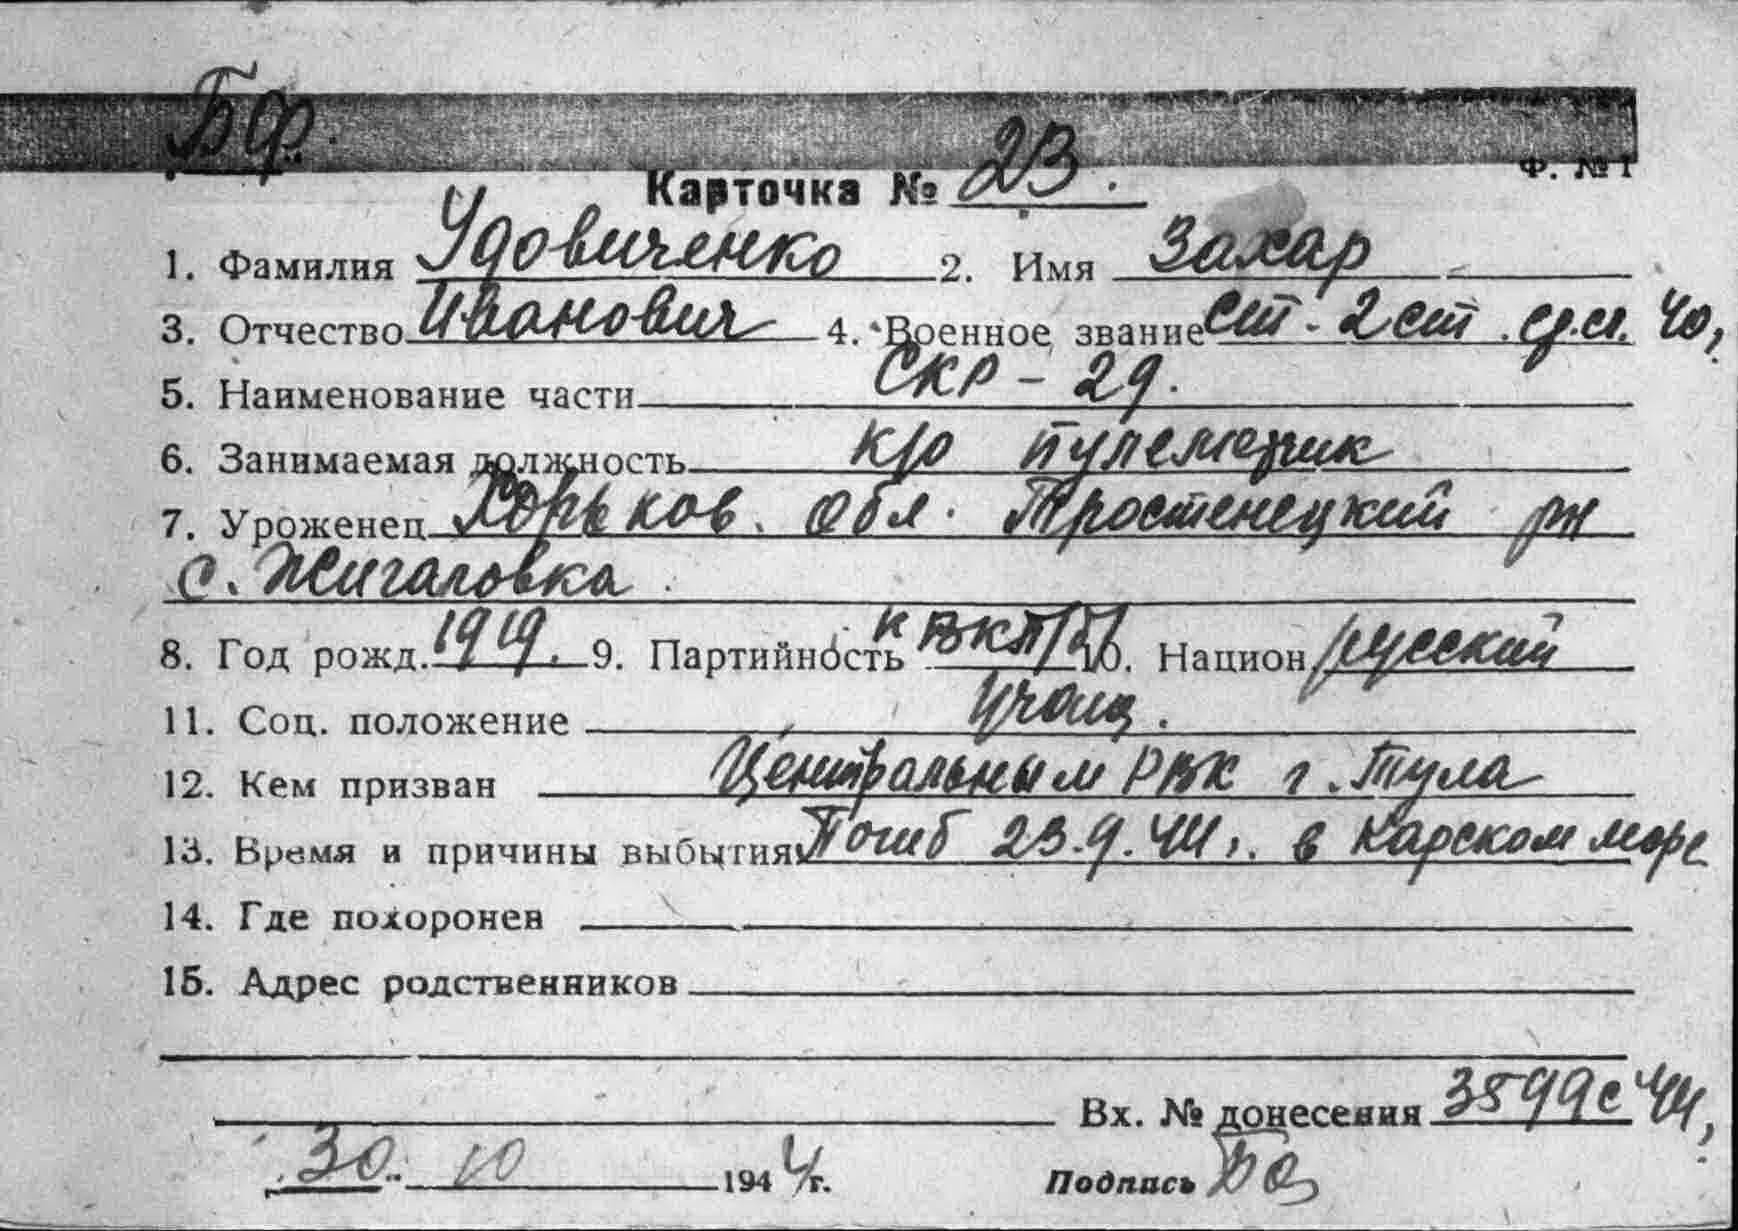 БФ.
Ф. № 1
Карточка № 23.
1. Фамилия Удовиченко 2. Имя Захар
3. Отчество Иванович 4. Военное звание ст. 2 ст. ср.сл. 40г.
5. Наименование части СКР - 29.
6. Занимаемая должность к/о пулеметчик
7. Уроженец Харьков. обл. Тростенецкий рн
с. Жигаловка
8. Год рожд. 1919. 9. Партийность к ВКП/б/ 10. Национ. русский
11. Соц. положение учащ.
12. Кем призван Центральным РВК г. Тула
13. Время и причины выбытия Погиб 23.9.44г. в Карском море
14. Где похоронен
15. Адрес родственников
Вх. № донесения 3599с 44г.
30. 10 1944 г. Подпись